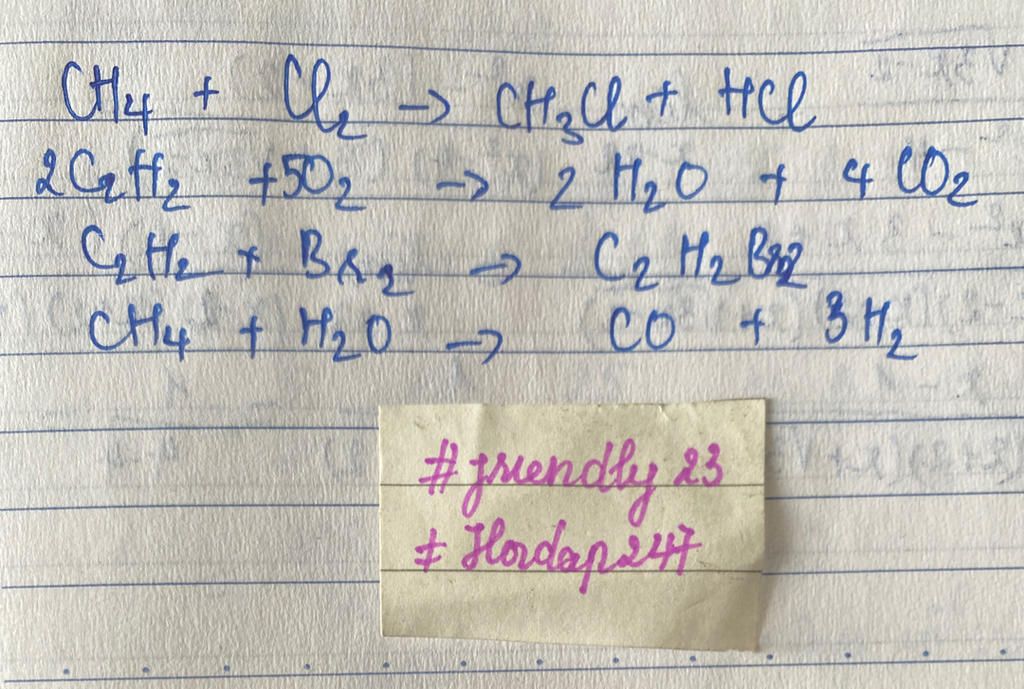 CH₄ + Cl₂ → CH₃Cl + HCl
2C₂H₂ + 5O₂ → 2 H₂O + 4 CO₂
C₂H₂ + Br₂ → C₂H₂Br₂
CH₄ + H₂O → CO + 3H₂
# friendly 23
# Hordap247